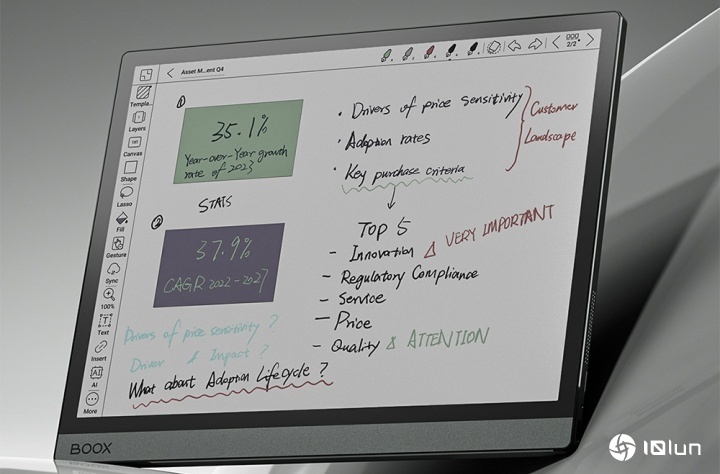 Asset M...ent Q4
2/2
Templa...
Layers
Canvas
Shape
Lasso
Fill
Gesture
Sync
100%
Text
Insert
AI
More
①
35.1%
Year-over-Year growth
rate of 2023
STATS
②
37.9%
CAGR 2022-2027
Drivers of price sensitivity ?
Driver & Impact ?
What about Adoption Lifecycle ?
• Drivers of price sensitivity
• Adoption rates
• Key purchase criteria
Customer
Landscape
TOP 5
- Innovation VERY IMPORTANT
- Regulatory Compliance
- Service
- Price
- Quality ATTENTION
BOOX
10lun